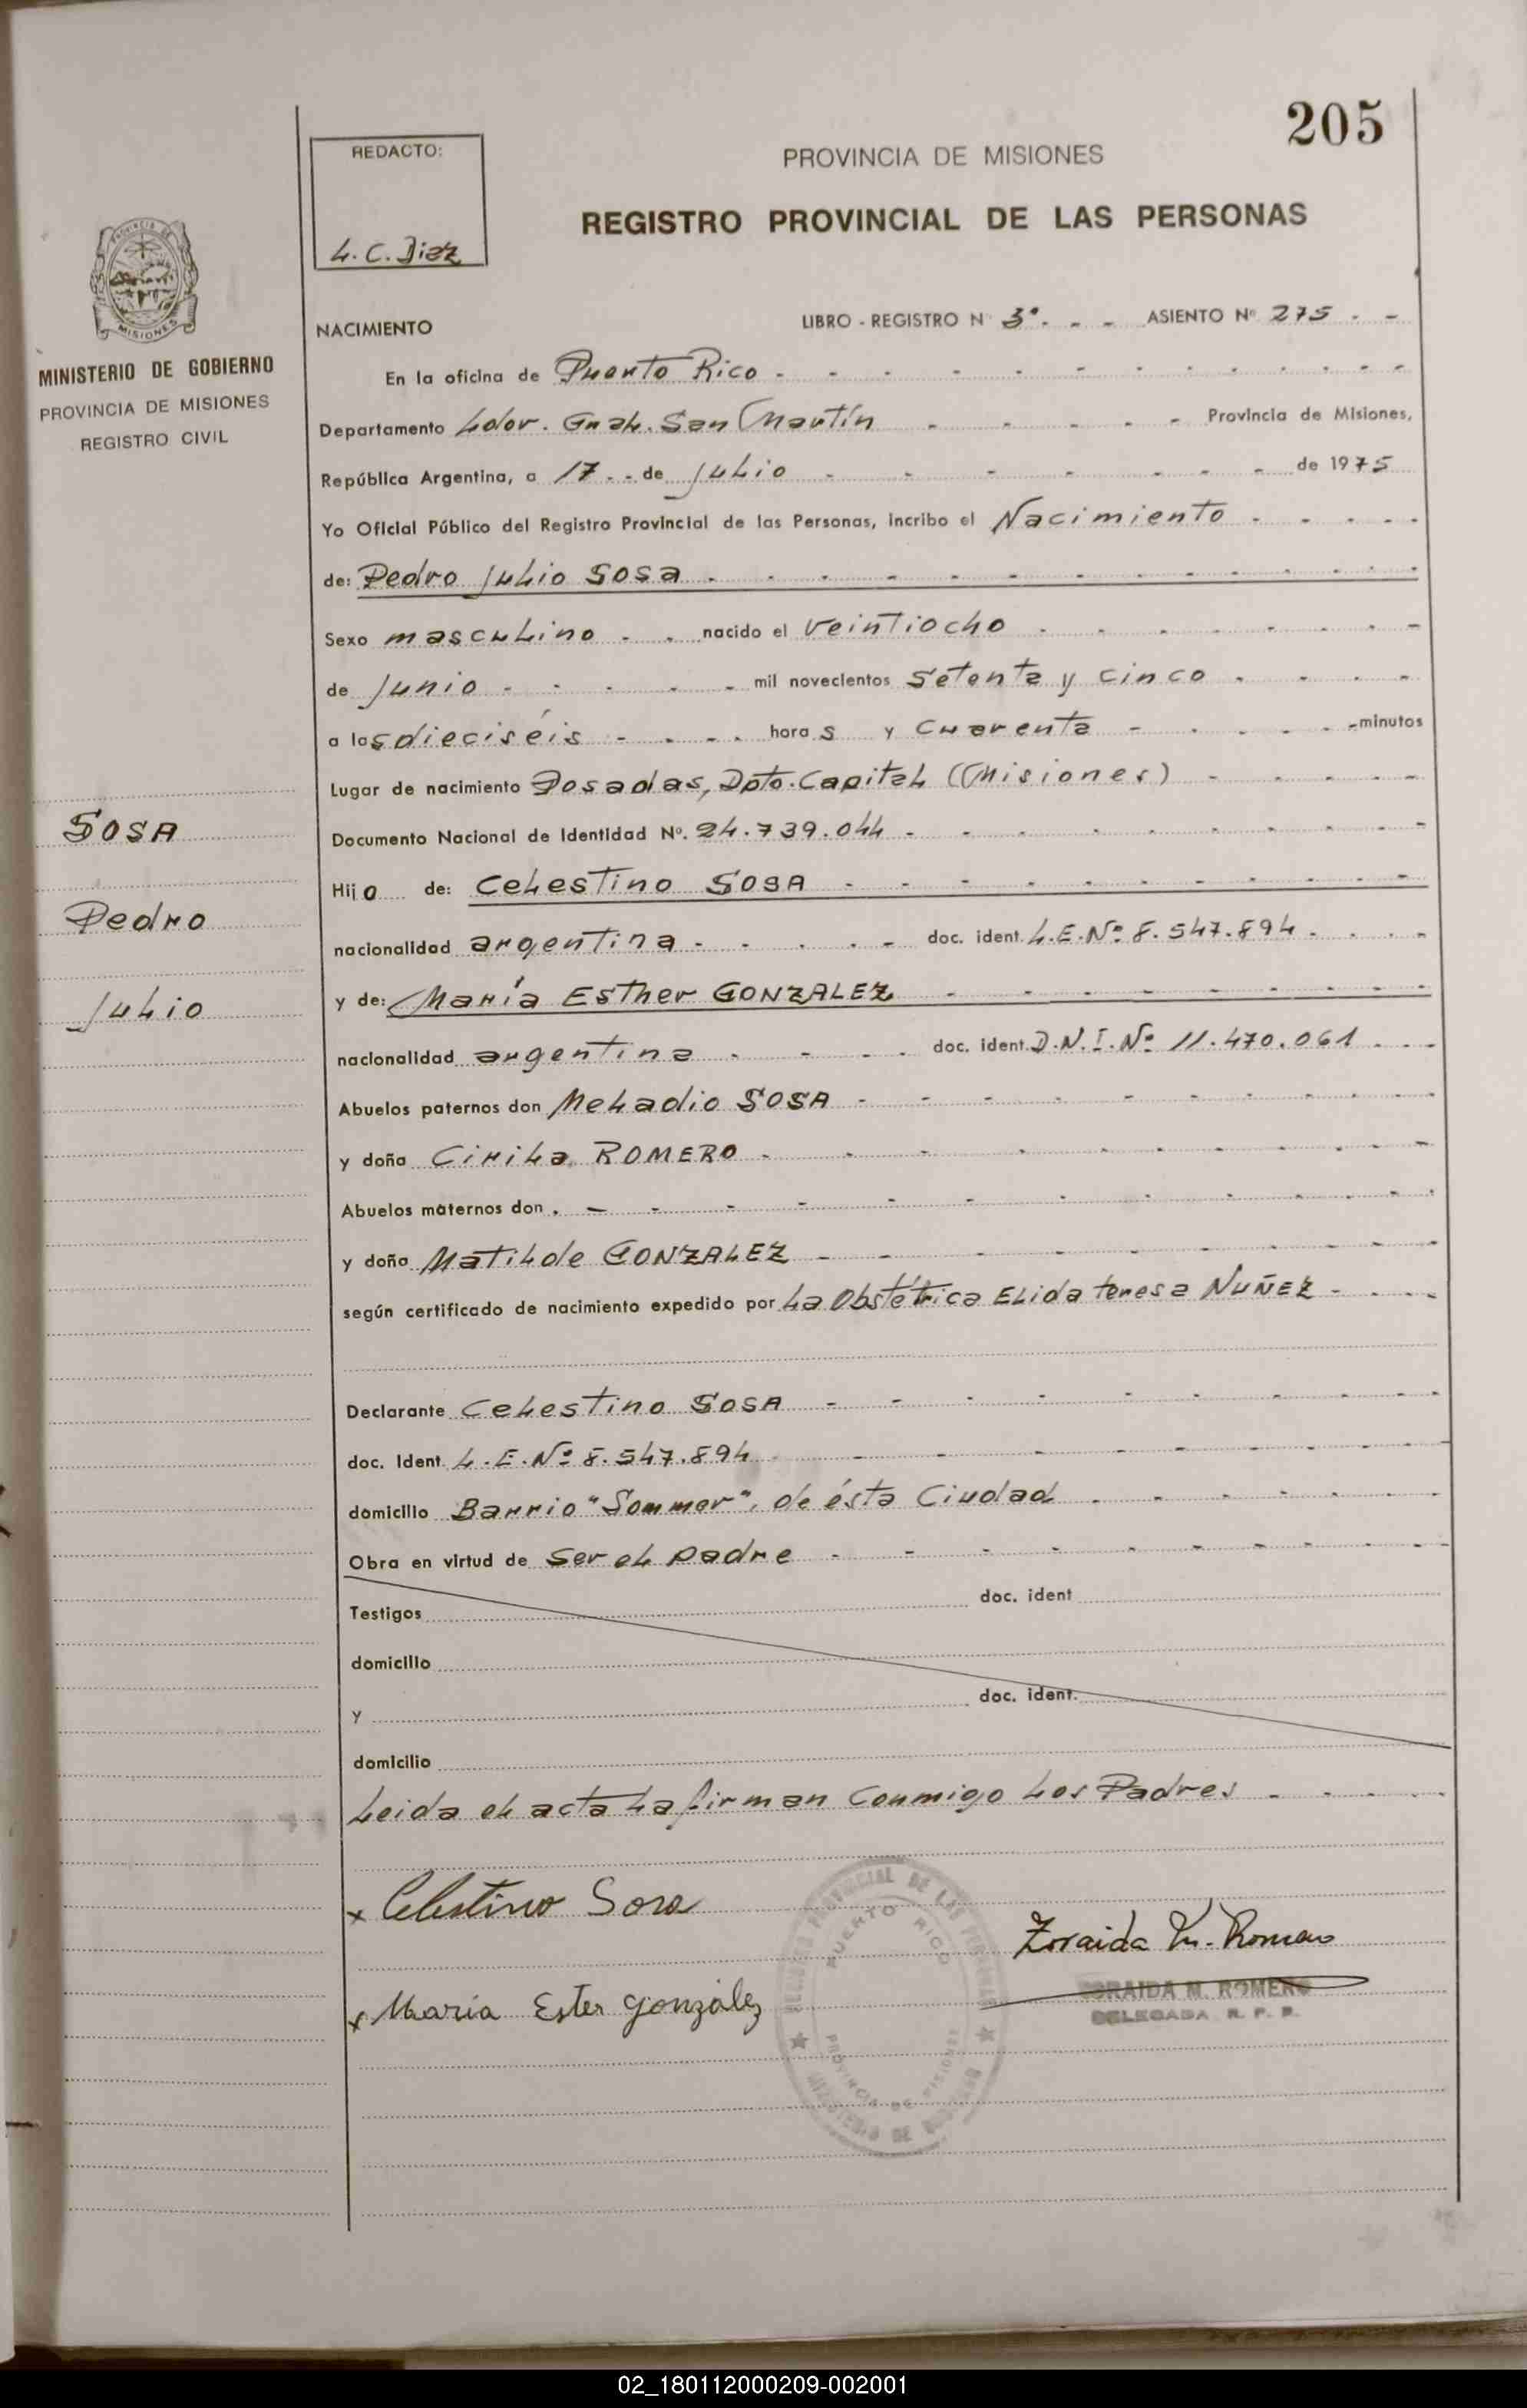 205
REDACTO:
L. C. Diez
PROVINCIA DE MISIONES
REGISTRO PROVINCIAL DE LAS PERSONAS
MISIONES
MINISTERIO DE GOBIERNO
PROVINCIA DE MISIONES
REGISTRO CIVIL
NACIMIENTO LIBRO - REGISTRO N 3°. - - ASIENTO Nº 275 - -
En la oficina de Puerto Rico -
Departamento Ldor. Gral. San Martín - Provincia de Misiones,
República Argentina, a 17 - - de Julio - de 1975
Yo Oficial Público del Registro Provincial de las Personas, incribo el Nacimiento -
de: Pedro Julio Sosa -
Sexo masculino - - nacido el veintiocho -
de Junio - mil novecientos setenta y cinco -
a las dieciséis - horas y cuarenta - minutos
Lugar de nacimiento Posadas, Dpto. Capital (Misiones) -
SOSA
Documento Nacional de Identidad Nº. 24.739.044 -
Hijo de: Celestino SOSA -
Pedro
nacionalidad argentina - doc. ident. L.E.Nº 8.547.894 -
y de: María Esther GONZALEZ -
Julio
nacionalidad argentina - doc. ident. D.N.I. Nº 11.470.061 -
Abuelos paternos don Meladio SOSA -
y doña Cirila ROMERO -
Abuelos maternos don . -
y doña Matilde GONZALEZ -
según certificado de nacimiento expedido por La Obstétrica Elida teresa NUÑEZ -
Declarante Celestino SOSA -
doc. Ident. L.E.Nº 8.547.894 -
domicilio Barrio "Sommer", de ésta Ciudad -
Obra en virtud de ser el padre -
Testigos doc. ident
domicilio
y doc. ident.
domicilio
Leida el acta La firman Conmigo Los Padres -
x Celestino Sosa
Zoraida M. Romero
x María Ester gonzález
ZORAIDA M. ROMERO
DELEGADA R. P. P.
REGISTRO PROVINCIAL DE LAS PERSONAS
PUERTO RICO
PROVINCIA DE MISIONES
MINISTERIO DE GOBIERNO
02_180112000209-002001